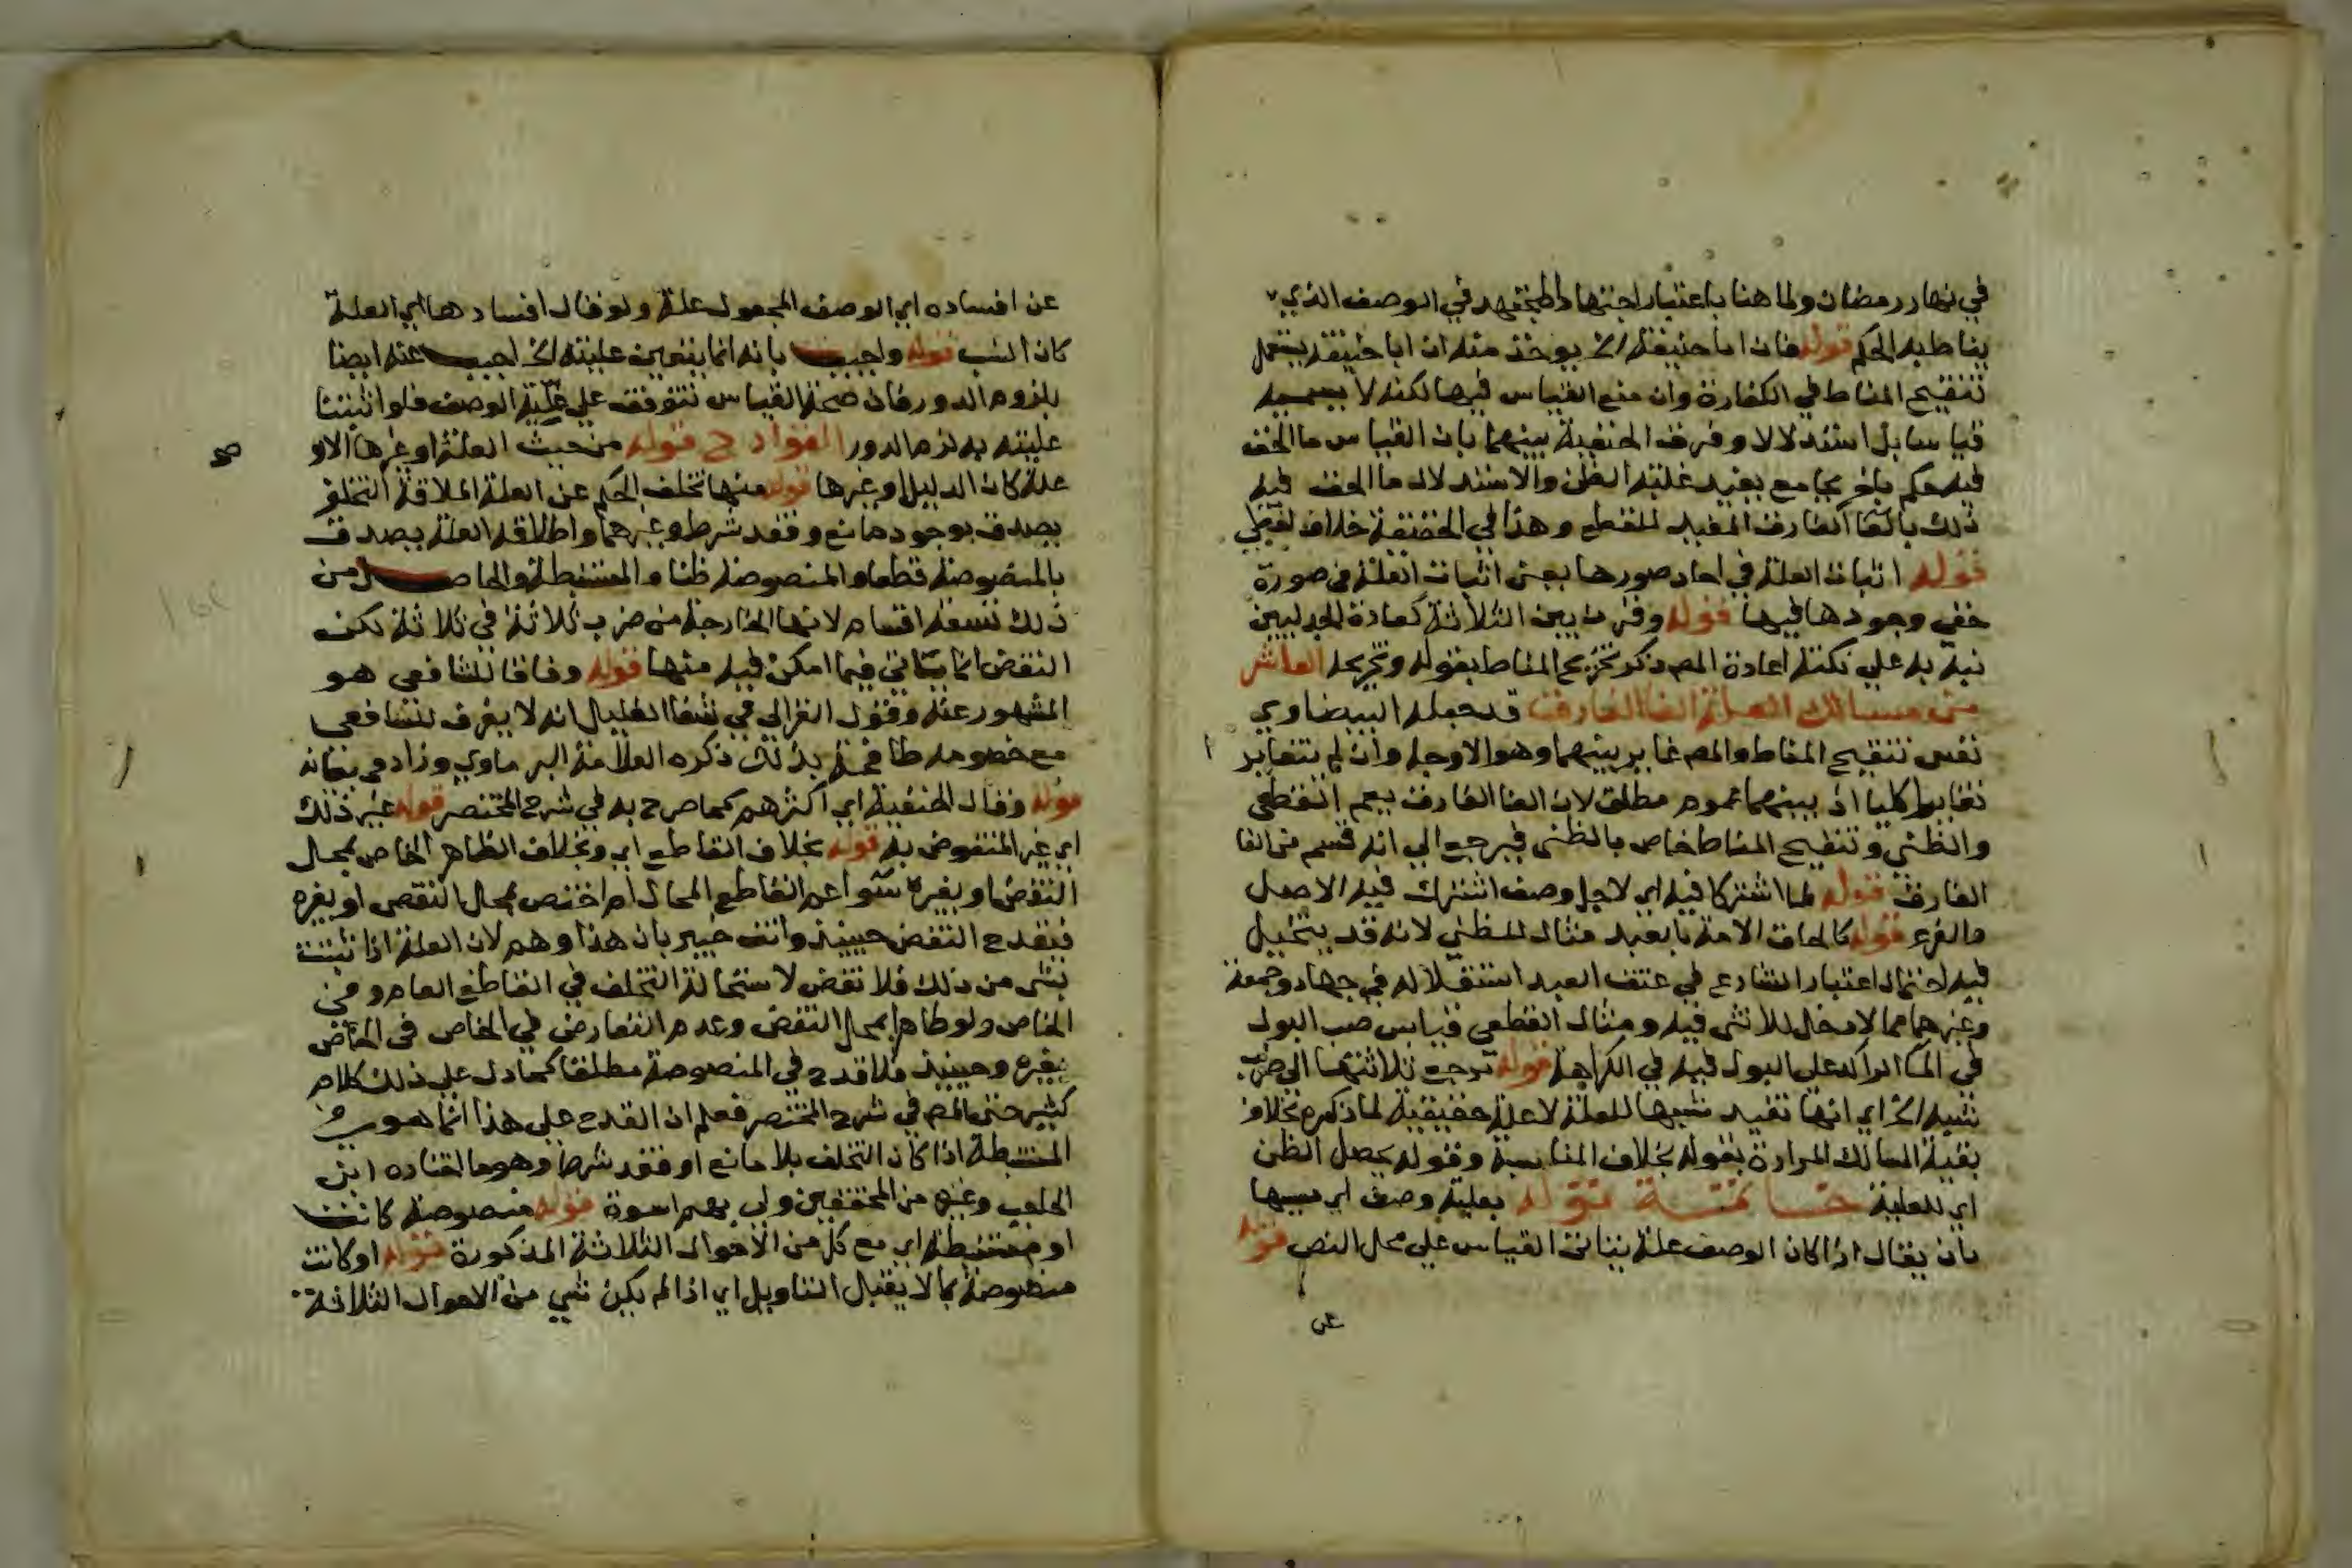 في نهار رمضان ولما هنا باعتبار اجتهاد المجتهد في الوصف الذي
يناط به الحكم قوله فان ابا حنيفة الخ يوخذ منه ان ابا حنيفة يستعمل
تنقيح المناط في الكفارة وان منع القياس فيها لكنه لا يسميه
قياسا بل استدلالا وفرق الحنفية بينهما بان القياس ما الحق
فيه حكم باخر بجامع يفيد غلبة الظن والاستدلال ما الحق فيه
ذلك بالغا الفارق المفيد للقطع وهذا في الحقيقة خلاف لفظي
قوله اثبات العلة في احاد صورها بمعنى اثبات العلة في صورة
خفي وجودها فيها قوله وقرن بين الثلاثة كعادة الجدليين
نبه به علي نكتة اعادة المص ذكر تخريج المناط بقوله وتخريجه العاشر
من مسالك العلة الغا الفارق قد جعله البيضاوي
نفس تنقيح المناط والمص غاير بينهما وهو الاوجه وان لم يتغاير
تغايرا كليا اذ بينهما عموم مطلق لان الغا الفارق يعم القطعي
والظني وتنقيح المناط خاص بالظني فيرجع الي انه قسم من الغا
الفارق قوله لما اشتركا فيه اي لاجل وصف اشترك فيه الاصل
والفرع قوله كالحاق الامة بالعبد مثال للظني لانه قد يتخيل
فيه احتمال اعتبار الشارع في عتق العبد استقلاله في جهاد وجمعة
وغيرهما مما لا دخل للانثى فيه ومثال القطعي قياس صب البول
في الما الراكد على البول فيه في الكراهة قوله ترجع ثلاثتها الى ضرب
شبه الخ اي انها تفيد شبها للعلة لا علة حقيقية لما ذكره بخلاف
بقية المسالك المرادة بقوله بخلاف المناسبة وقوله يحصل الظن
اي للعلية خاتمة قوله بعلية وصف اي بسببها
بان يقال اذا كان الوصف علة يتاتى القياس علي محل النص قوله
عن
عن افساده اي الوصف المجعول علة ولو قال افسادها اي العلة
كان انسب قوله واجيب بانه انما يتعين عليته الخ اجيب عنه ايضا
بلزوم الدور فان صحة القياس تتوقف علي علية الوصف فلو اثبتنا
عليته به لزم الدور القوادح قوله من حيث العلة او غيرها الاو
علة كان الدليل او غيرها قوله منها تخلف الحكم عن العلة اطلاقه التخلف
يصدق بوجود مانع وفقد شرط وغيرهما واطلاقه العلة يصدق
بالمنصوصة قطعا والمنصوصة ظنا والمستنبطة والحاصل من
ذلك تسعة اقسام لانها الخارجة من ضرب ثلاثة في ثلاثة لكن
النقض انما يتاتى فيما امكن فيه منها قوله وفاقا للشافعي هو
المشهور عنه وقول الغزالي في شفا الغليل انه لا يعرف للشافعي
مع خصومه طافحة بذلك ذكره العلامة البرماوي وزاد
قوله وقال الحنفية اي اكثرهم كما صرح به في شرح المختصر قوله غير ذلك
اي غير المنقوض به قوله بخلاف القاطع اي وبخلاف الظاهر الخاص بمحل
النقض او بغيره سوا عم القاطع المحال ام اختص بمحل النقص او بغيره
فيقدح النقض حينيذ وانت خبير بان هذا وهم لان العلة اذا ثبتت
بشي من ذلك فلا نقض لاستحالة التخلف في القاطع العام وفي
الخاص ولو ظاهرا بمحل النقض وعدم التعارض في الخاص في الخاص
بغيره وحينيذ فلا قدح في المنصوصة مطلقا كما دل علي ذلك كلام
كثير حتى المص في شرح المختصر فعلم ان القدح على هذا انما هو في
المستنبطة اذا كان التخلف بلا مانع او فقد شرط وهو ما اختاره ابن
الحاجب وغيره من المحققين ولي بهم اسوة قوله منصوصة كانت
او مستنبطة اي مع كل من الاحوال الثلاثة المذكورة قوله او كانت
منصوصة بما لا يقبل التاويل اي اذا لم يكن شي من الاحوال الثلاثة